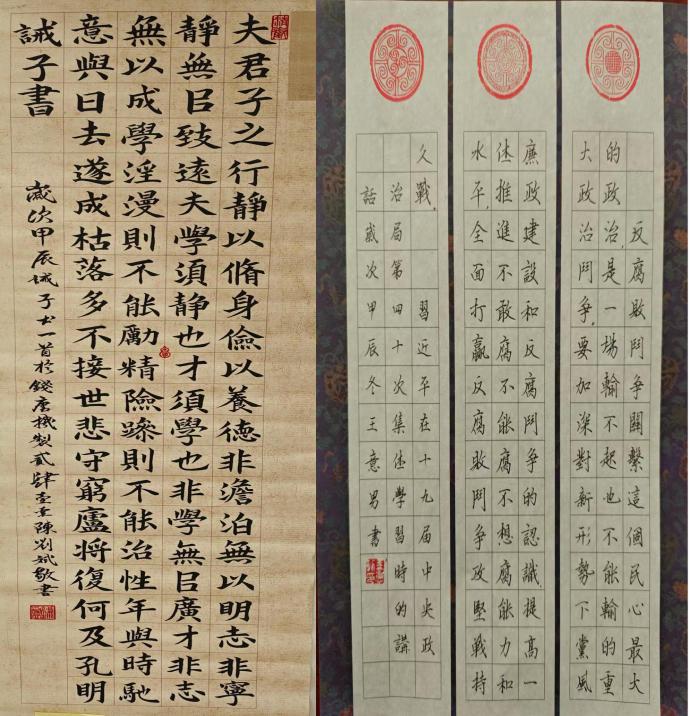 夫君子之行靜以脩身儉以養德非澹泊無以明志非寧
靜無㠯致遠夫學須靜也才須學也非學無㠯廣才非志
無以成學淫漫則不能勵精險躁則不能治性年與時馳
意與日去遂成枯落多不接世悲守窮廬將復何及孔明
誡子書
歲次甲辰誡子书一首於錢唐 劉斌敬書
反腐敗鬥爭關繫這個民心最大
的政治,是一場輸不起也不能輸的重
大政治鬥爭,要加深對新形勢下黨風
廉政建設和反腐鬥爭的認識提高一
体推進不敢腐不能腐不想腐能力和
水平,全面打贏反腐敗鬥爭攻堅戰持
久戰。 習近平在十九届中央政
治局第四十次集体學習時的講
話歲次甲辰冬王意男書